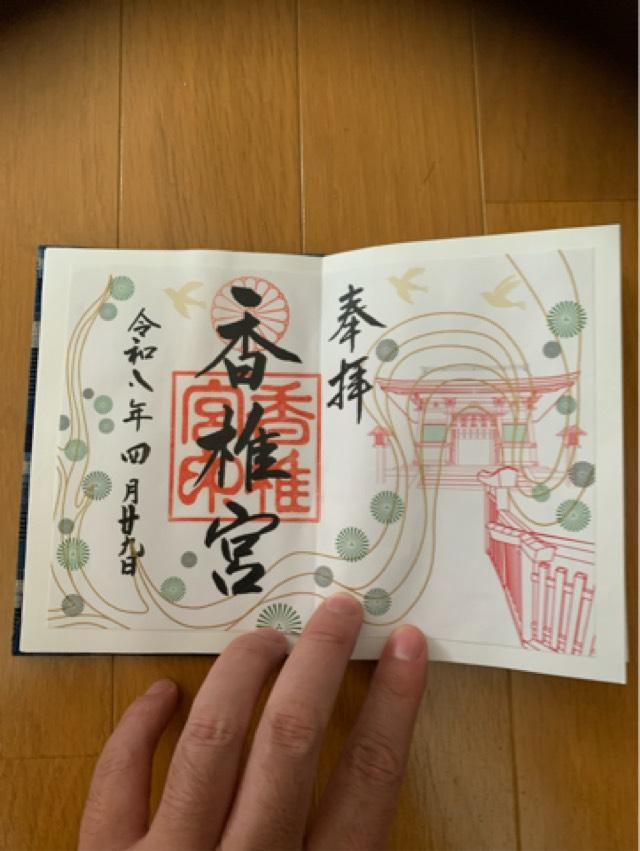 奉拝
香椎宮
香椎宮印
令和八年四月廿九日